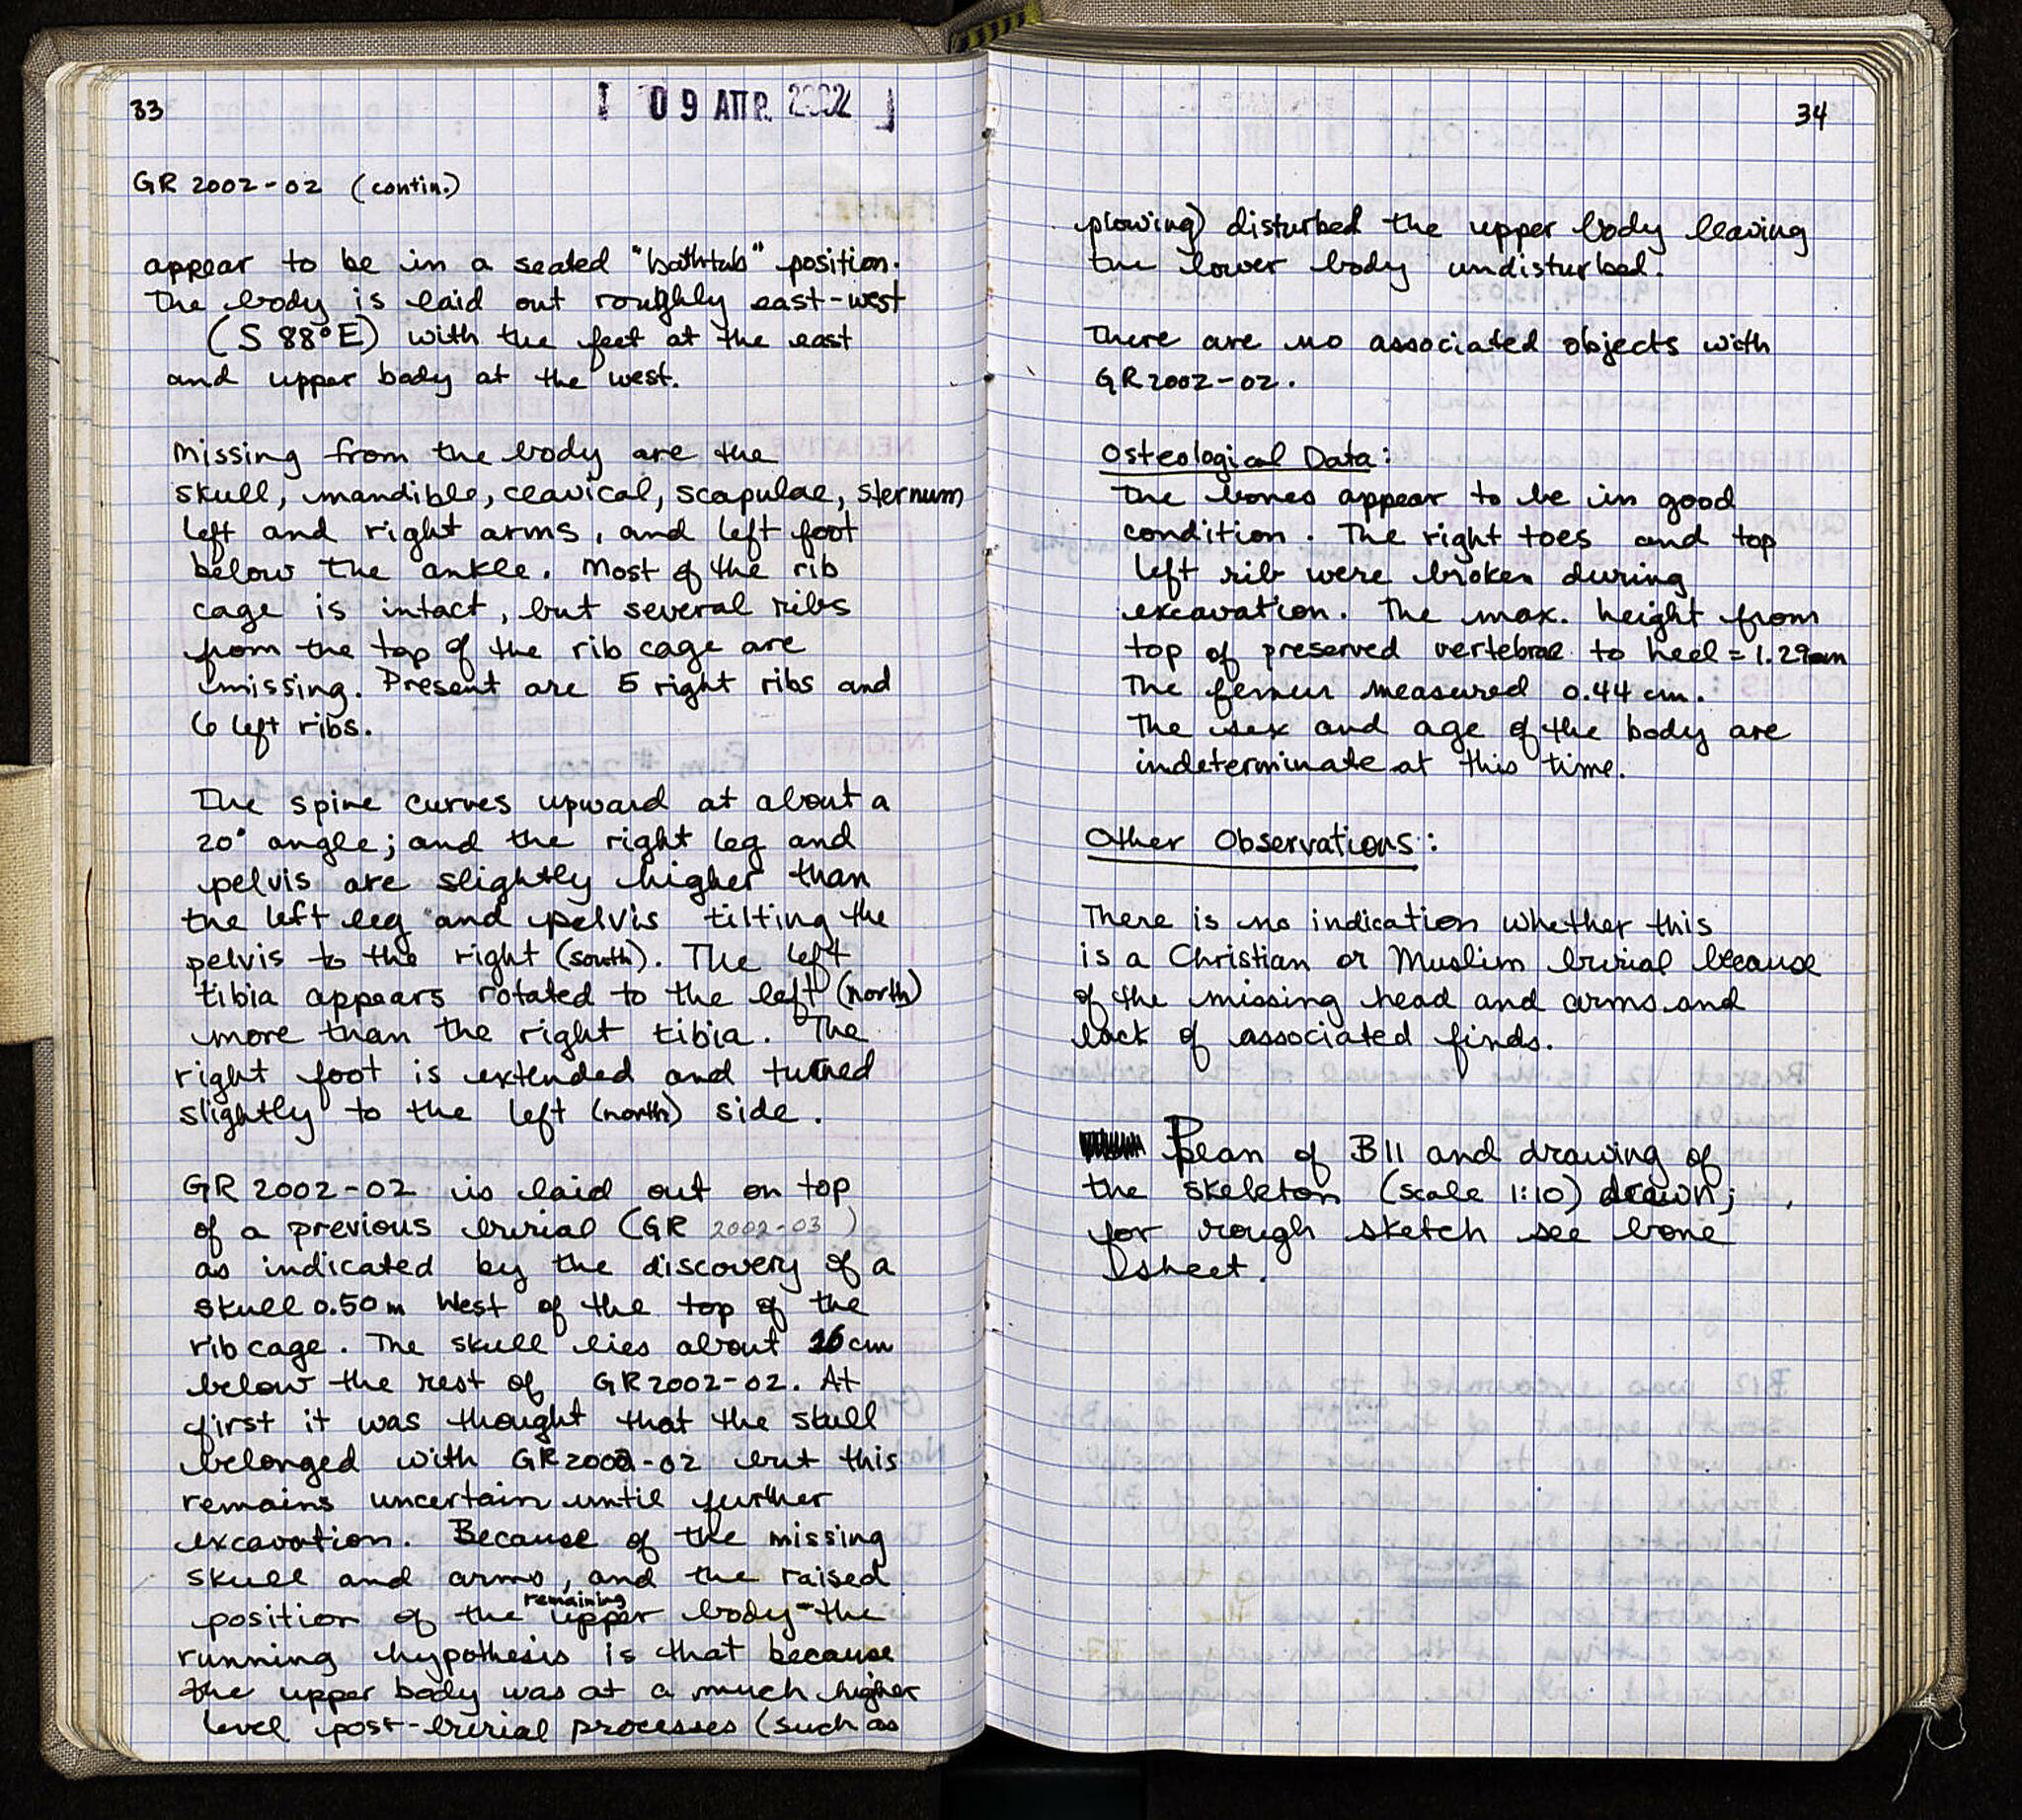 33
09 ΑΠΡ. 2002
GR 2002-02 (contin.)
appear to be in a seated "bathtub" position.
The body is laid out roughly east-west
(S 88°E) with the feet at the east
and upper body at the west.
Missing from the body are the
skull, mandible, clavical, scapulae, sternum
left and right arms, and left foot
below the ankle. Most of the rib
cage is intact, but several ribs
from the top of the rib cage are
missing. Present are 5 right ribs and
6 left ribs.
The spine curves upward at about a
20° angle; and the right leg and
pelvis are slightly higher than
the left leg and pelvis tilting the
pelvis to the right (south). The left
tibia appears rotated to the left (north)
more than the right tibia. The
right foot is extended and turned
slightly to the left (north) side.
GR 2002-02 is laid out on top
of a previous burial (GR 2002-03)
as indicated by the discovery of a
skull 0.50m West of the top of the
rib cage. The skull lies about 16cm
below the rest of GR2002-02. At
first it was thought that the skull
belonged with GR2002-02 but this
remains uncertain until further
excavation. Because of the missing
skull and arms, and the raised
position of the remaining upper body - the
running hypothesis is that because
the upper body was at a much higher
level post-burial processes (such as
34
plowing) disturbed the upper body leaving
the lower body undisturbed.
There are no associated objects with
GR2002-02.
Osteological Data:
The bones appear to be in good
condition. The right toes and top
left rib were broken during
excavation. The max. height from
top of preserved vertebrae to heel = 1.29
The femur measured 0.44 cm.
The sex and age of the body are
indeterminate at this time.
Other Observations:
There is no indication whether this
is a Christian or Muslim burial because
of the missing head and arms and
lack of associated finds.
Plan of B11 and drawing of
the skeleton (scale 1:10) drawn;
for rough sketch see bone
sheet.